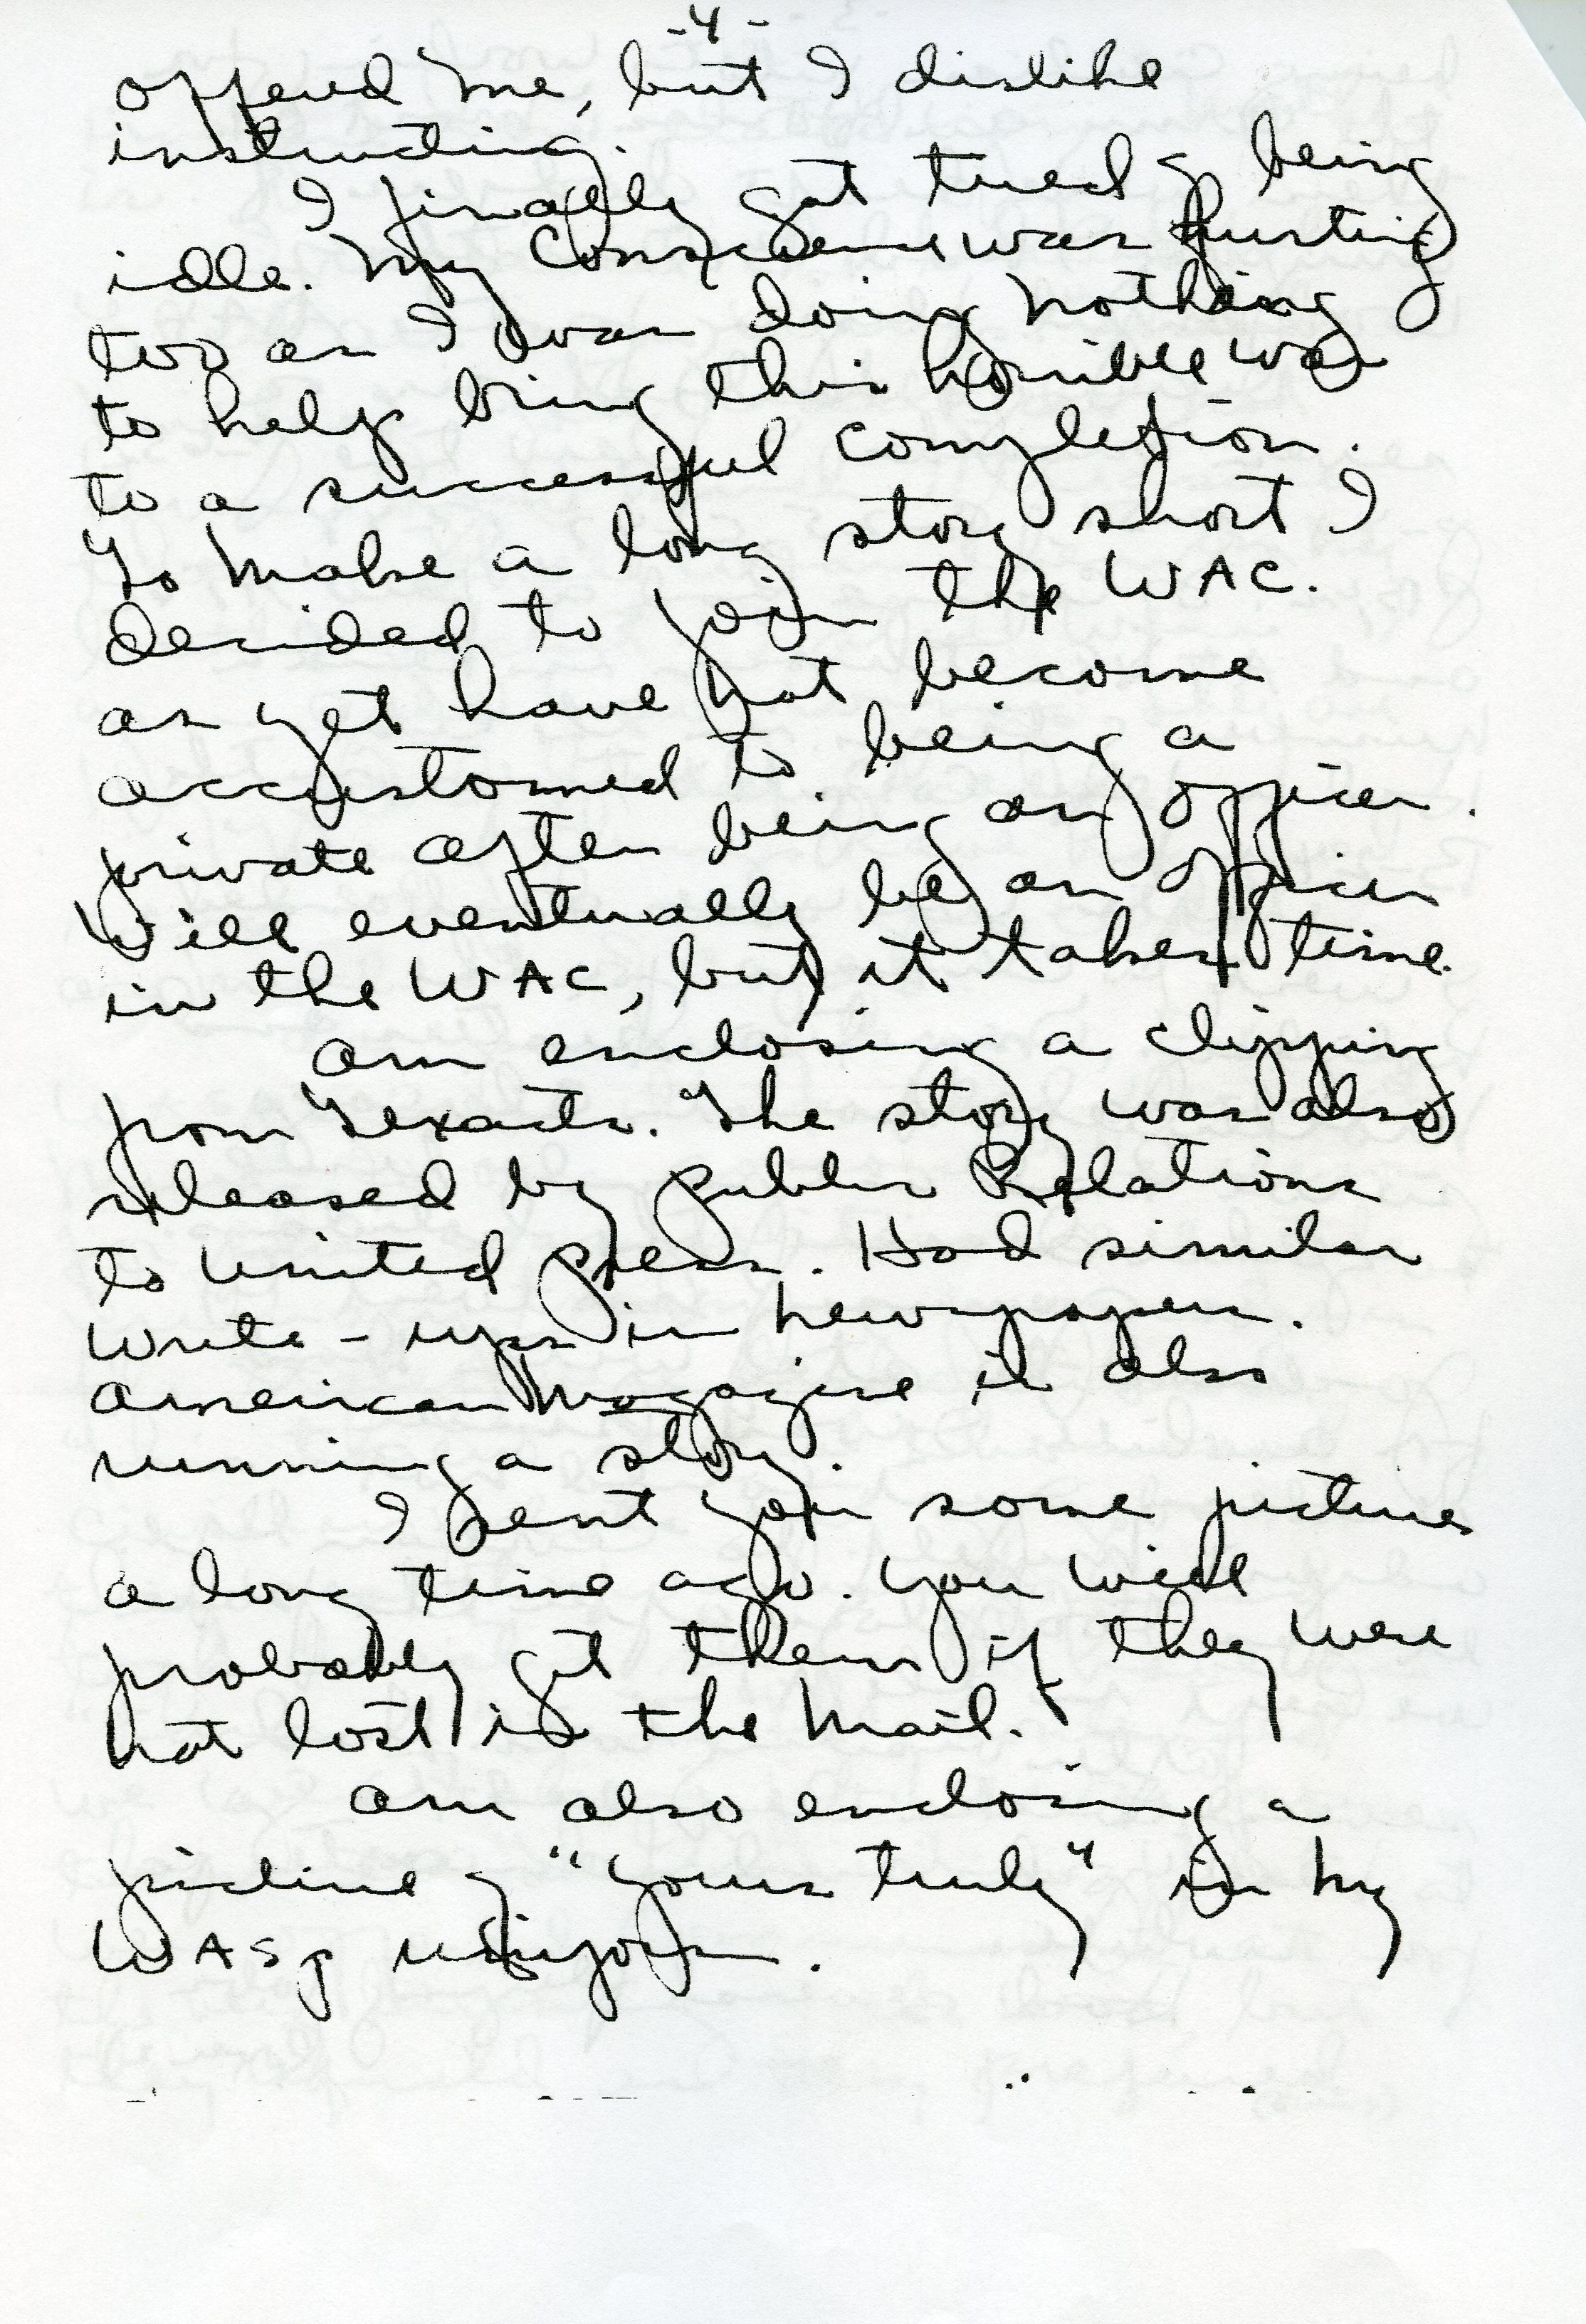 -4-
offend me, but I dislike
instructing.
I finally got tired of being
idle. My conscience was hurting
too as I was doing nothing
to help bring this horrible war
to a successful completion.
To make a long story short I
decided to join the WAC.
as yet have not become
accustomed to being a
private after being an officer.
Will eventually be an officer
in the WAC, but it takes time.
am enclosing a clipping
from Texacts. The story was also
released by Public Relations
to United Press. Had similar
write-ups in newspapers.
American Magazine is also
running a story.
I sent you some pictures
a long time ago. You will
probably get them if they were
not lost in the mail.
am also enclosing a
picture of "yours truly" in my
WASP uniform.